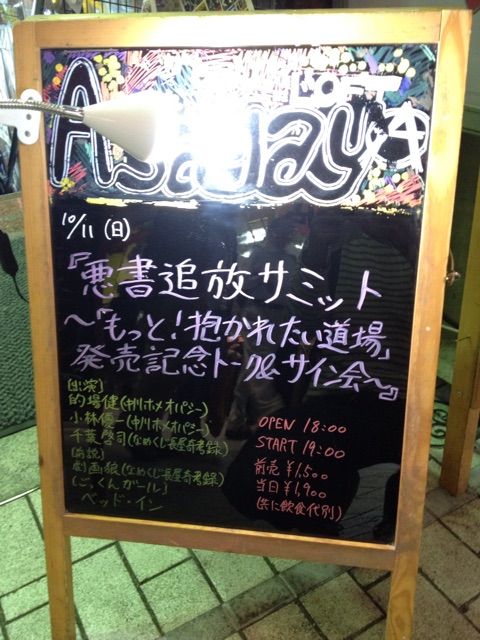 LOFT
Asagaya
10/11(日)
『悪書追放サミット
〜「もっと!抱かれたい道場」
発売記念トーク&サイン会〜』
[出演]
的場健(中川ホメオパシー)
小林優一(中川ホメオパシー)
千葉啓司(なめくじ長屋奇考録)
[前説]
劇画狼(なめくじ長屋奇考録)
[ごっくんガール]
ベッド・イン
OPEN 18:00
START 19:00
前売 ¥1,500
当日 ¥1,900
(共に飲食代別)